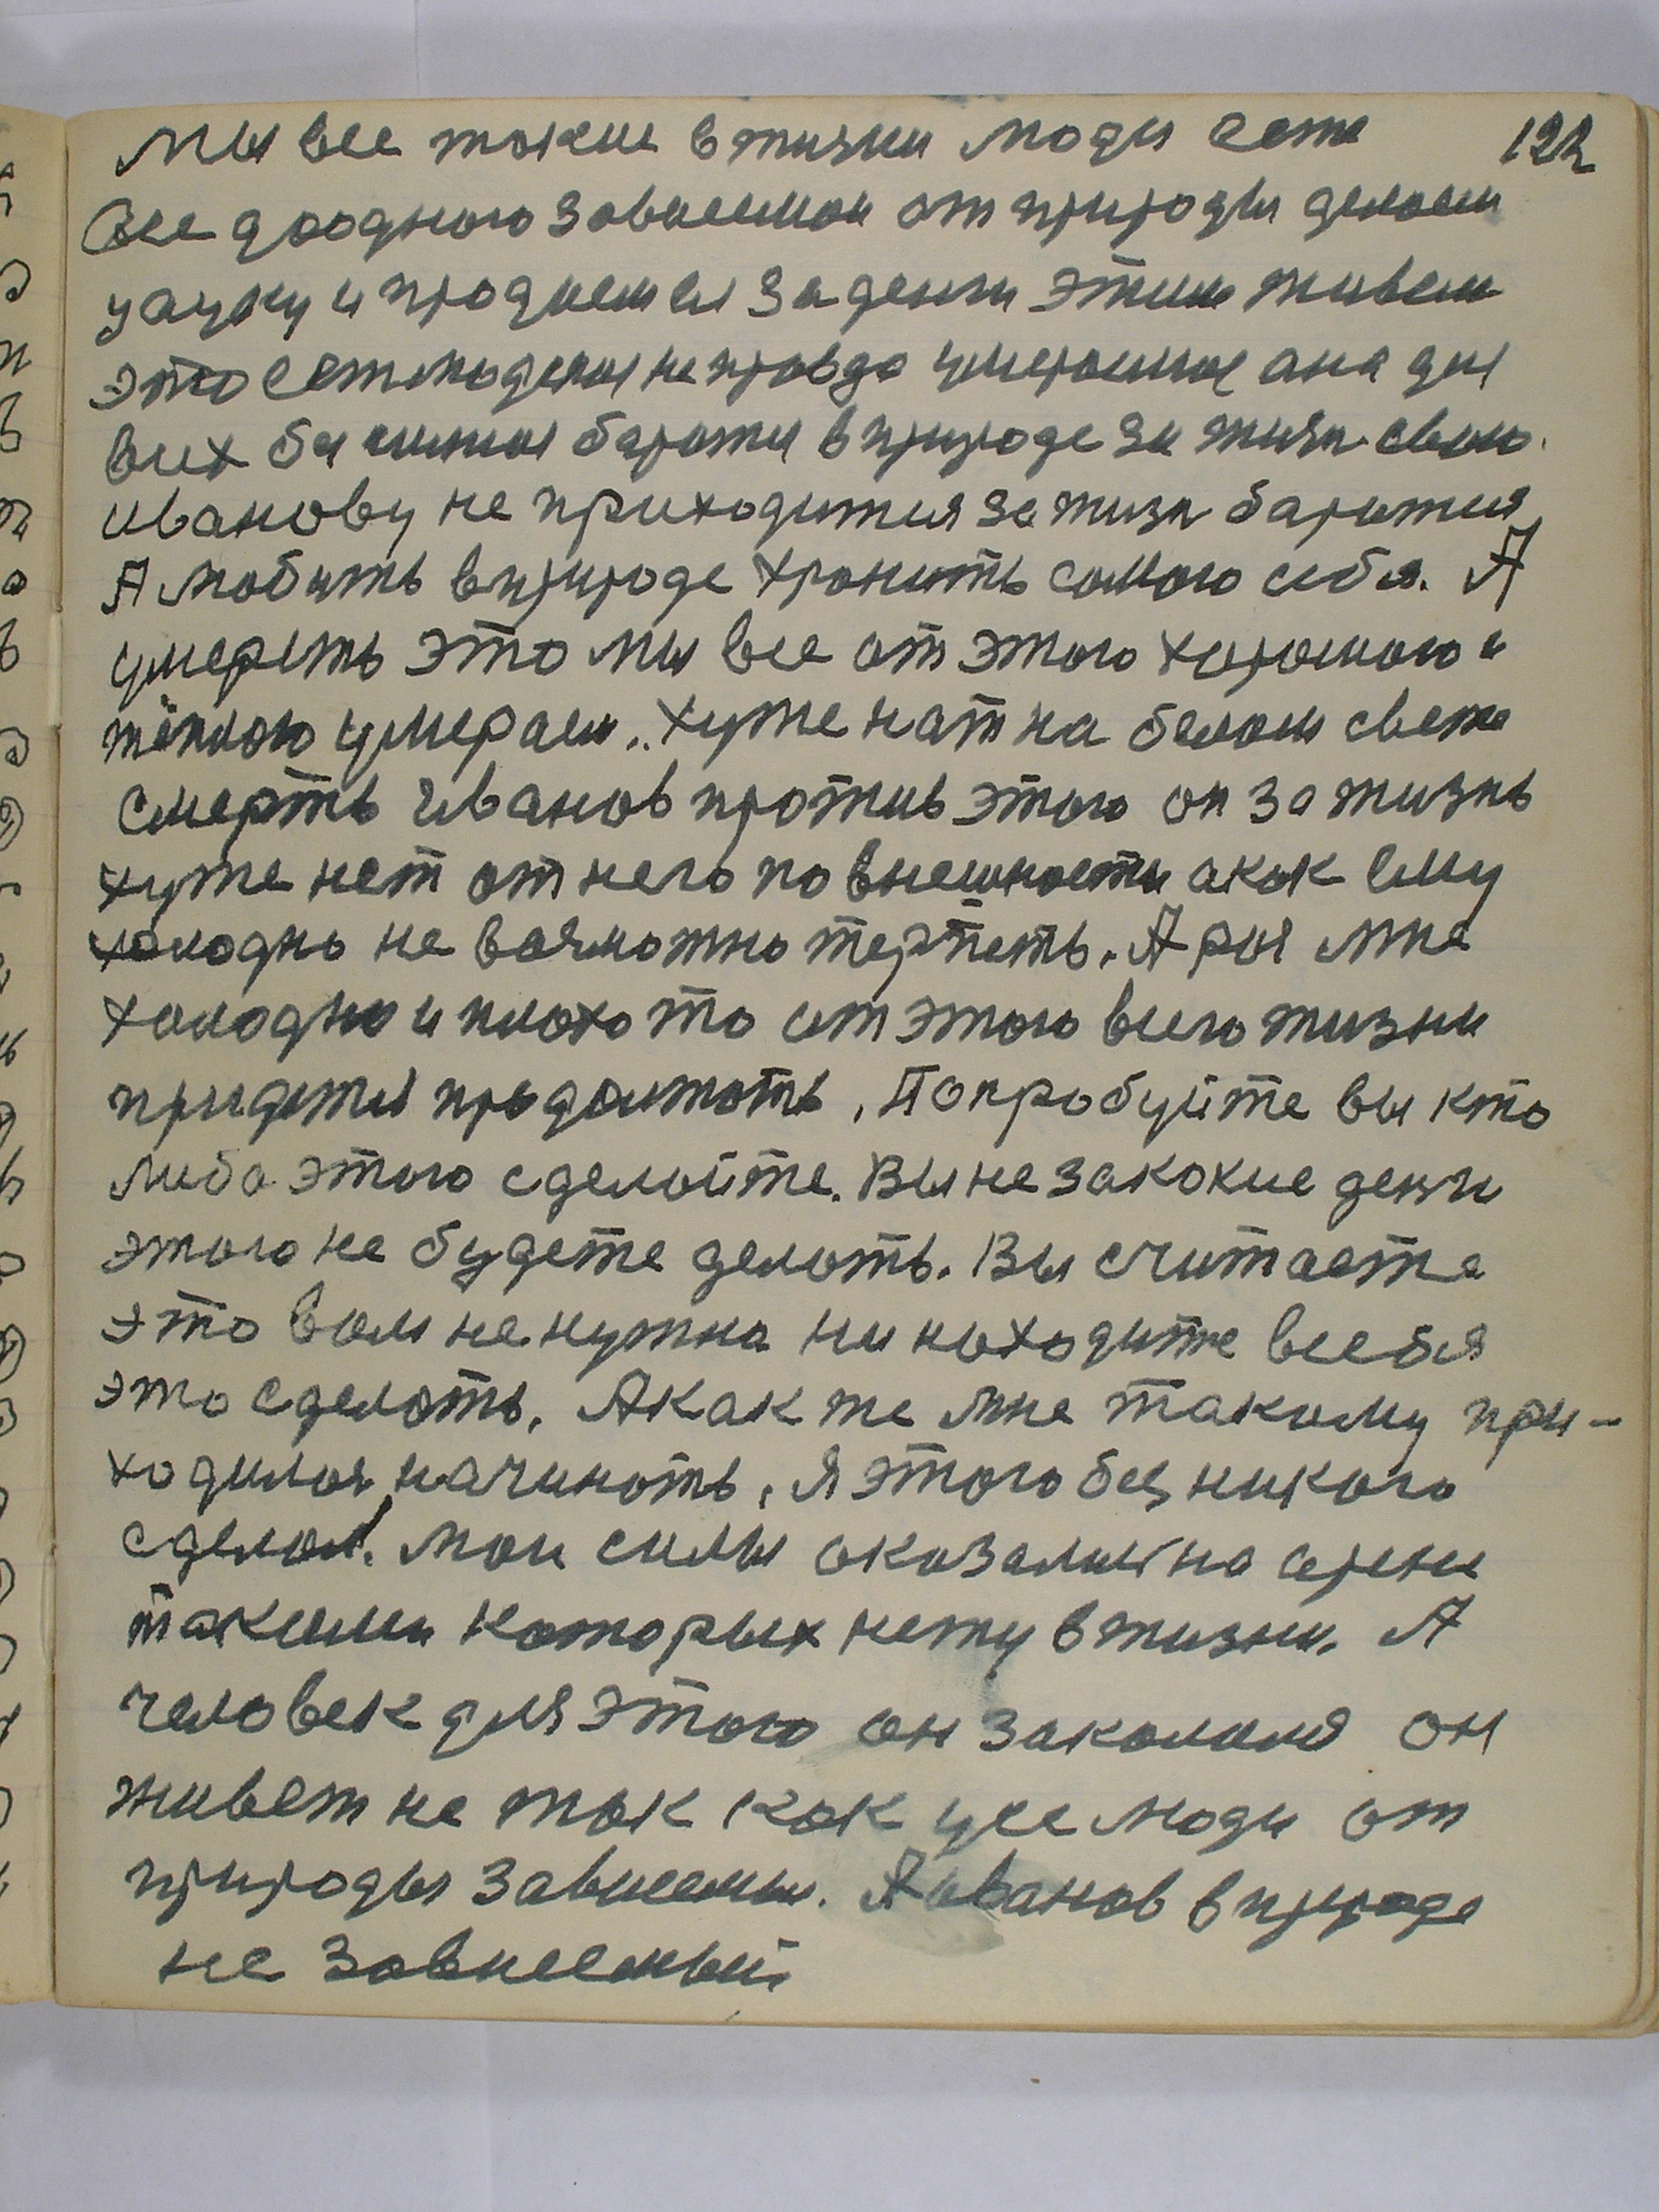 мы все такие в жизни люди есть 122
Все доодного зависемои от природы делаем
уацуку и продаемся за денги этим живем
это есть людская не правда умераемые ана для
всих бы чимая баратся в природе за жизн свою.
иванову не приходится за жизн баратся
А любить в природе хранить самого себя. А
умереть это мы все от этого хорошого и
тёплого умераем.. хуже нат на белом свете
смерть иванов против этого он за жизнь
хуже нет от него по внешности акак ему
холодно не вазможно терпеть. А раз мне
холодно и плохо то от этого всего жизни
придется продолжать. Попробуйте вы кто
либа этого сделайте. Вы не закакие денги
этого не будете делать. Вы считаете
это вам не нужна ни находите всебя
это сделать. Акак же мне такому при-
ходился начинать. я этого без никого
сделал. мои силы оказались на арене
такими которых нету в жизни. А
человек для этого он закалился он
живет не так как усе люди от
природы зависемы. А иванов в природе
не зависемый